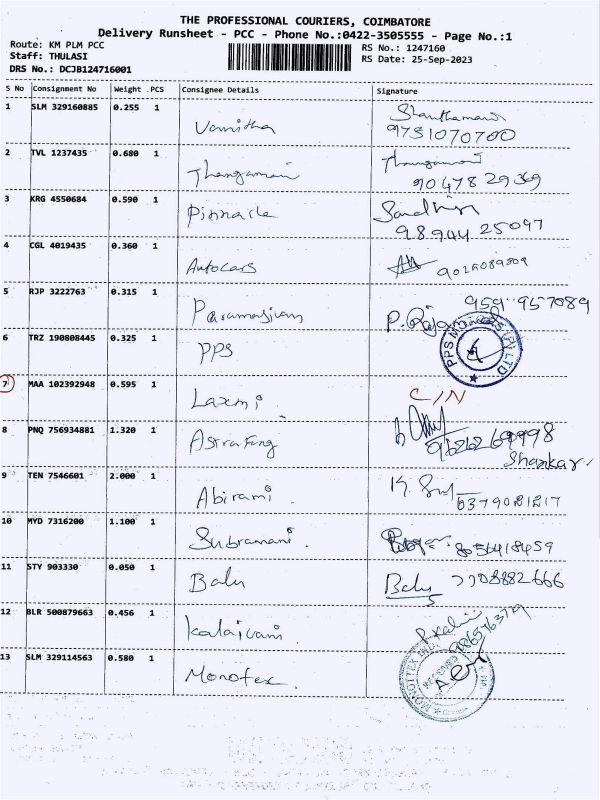 THE PROFESSIONAL COURIERS, COIMBATORE
Delivery Runsheet - PCC - Phone No.:0422-3505555 - Page No.:1
Route: KM PLM PCC RS No.: 1247160
Staff: THULASI RS Date: 25-Sep-2023
DRS No.: DCJB124716001
S No Consignment No Weight .PCS Consignee Details Signature
1 SLM 329160885 0.255 1 Vanitha
9751070700
2 TVL 1237435 0.680 1 Thangamani
90478 29369
3 KRG 4550684 0.590 1 Pinnacle Sandhiya
98944 25097
4 CGL 4019435 0.360 1 Autocars
5 RJP 3222763 0.315 1 Paramasivam 959 957089
P. Raja
6 TRZ 190808445 0.325 1 PPS PPS (P) LTD
7 MAA 102392948 0.595 1 Laxmi. C/N
8 PNQ 756934881 1.320 1 Astrafong
Shankar.
9 TEN 7546601 2.000 1 Abirami.
10 MYD 7316200 1.100 1 Subramani. 8056418459
11 STY 903330 0.050 1 Balu Balu 7708882666
12 BLR 500879663 0.456 1 Kalaivani P. Kalai
13 SLM 329114563 0.580 1 Monotex. RECEIVED